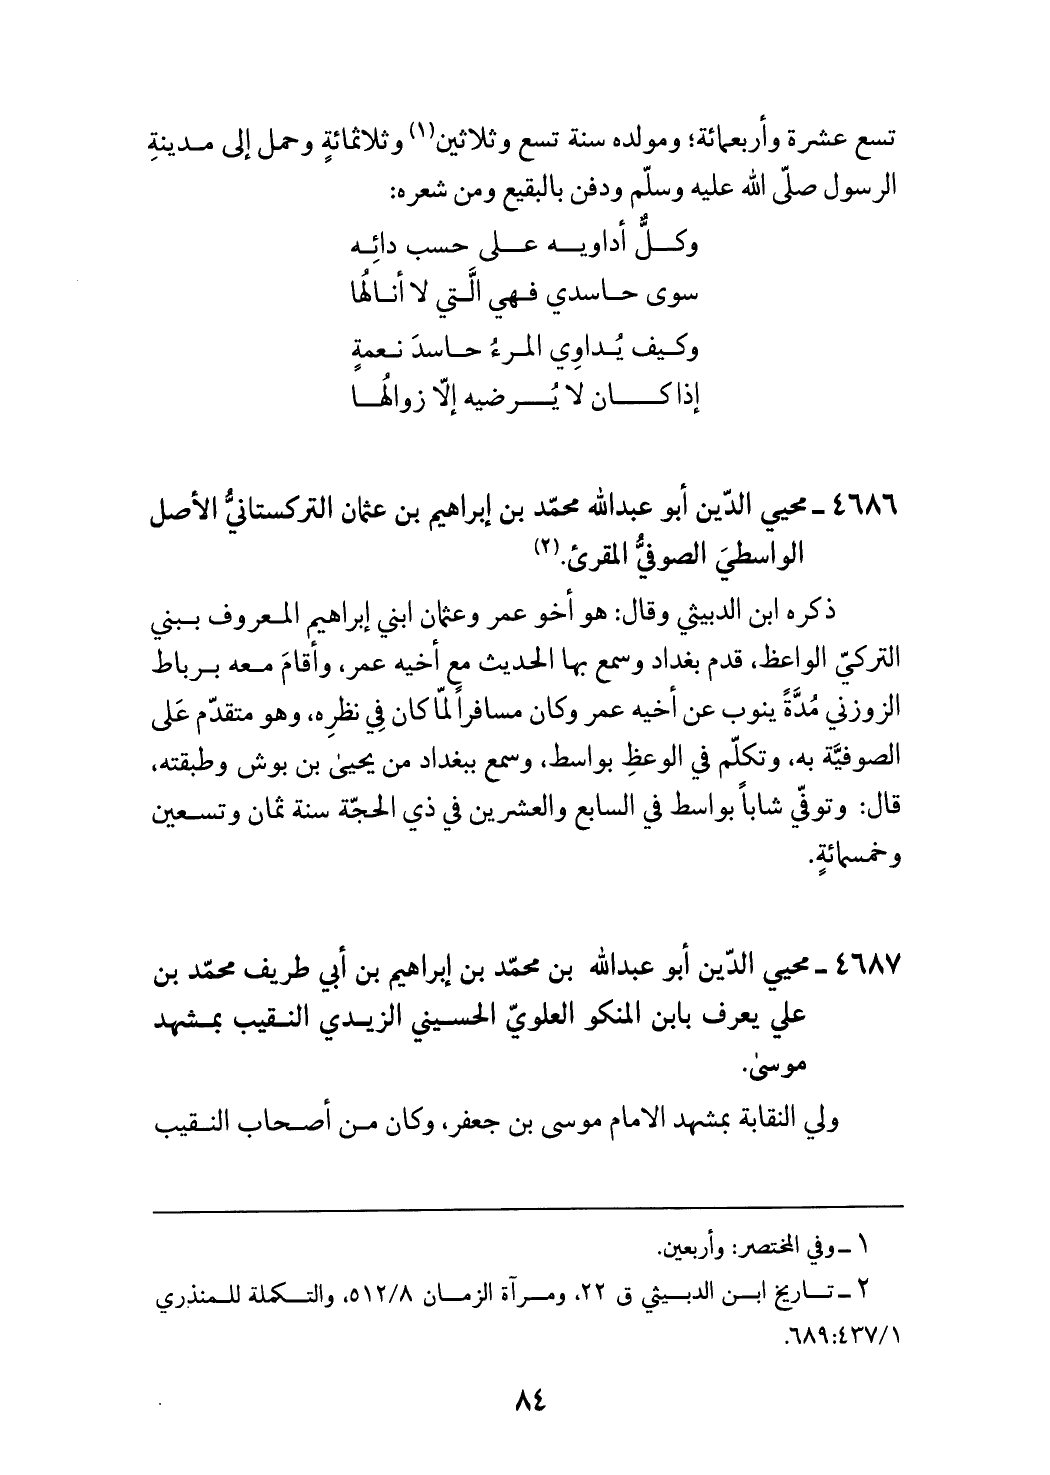 تسع عشرة وأربعمائة؛ ومولده سنة تسع وثلاثين(١) وثلاثمائةٍ وحمل إلى مدينةِ
الرسول صلّى الله عليه وسلّم ودفن بالبقيع ومن شعره:
وكلٌّ أداويه على حسب دائِه
سوى حاسدي فهي الَّتي لا أنالهُا
وكيف يُداوِي المرءُ حاسدَ نعمةٍ
إذا كان لا يُرضيه إلّا زوالهُا
٤٦٨٦ ـ محيي الدّين أبو عبدالله محمّد بن إبراهيم بن عثمان التركستانيُّ الأصل
الواسطيَ الصوفيُّ المقرئ.(٢)
ذكره ابن الدبيثي وقال: هو أخو عمر وعثمان ابني إبراهيم المعروف ببني
التركيّ الواعظ، قدم بغداد وسمع بها الحديث مع أخيه عمر، وأقامَ معه برباط
الزوزني مُدَّةً ينوب عن أخيه عمر وكان مسافراً لمّا كان فِي نظرِه، وهو متقدّم عَلى
الصوفيَّة به، وتكلّم في الوعظِ بواسط، وسمع ببغداد من يحيىٰ بن بوش وطبقته،
قال: وتوفّي شاباً بواسط في السابع والعشرين في ذي الحجّة سنة ثمان وتسعين
وخمسمائةٍ.
٤٦٨٧ ـ محيي الدّين أبو عبدالله بن محمّد بن إبراهيم بن أبي طريف محمّد بن
علي يعرف بابن المنكو العلويّ الحسيني الزيدي النقيب بمشهد
موسىٰ.
ولي النقابة بمشهد الامام موسى بن جعفر، وكان من أصحاب النقيب
١ ـ وفي المختصر: وأربعين.
٢ ـ تاريخ ابن الدبيثي ق ٢٢، ومرآة الزمان ٥١٢/٨، والتكملة للمنذري
٦٨٩:٤٣٧/١.
٨٤